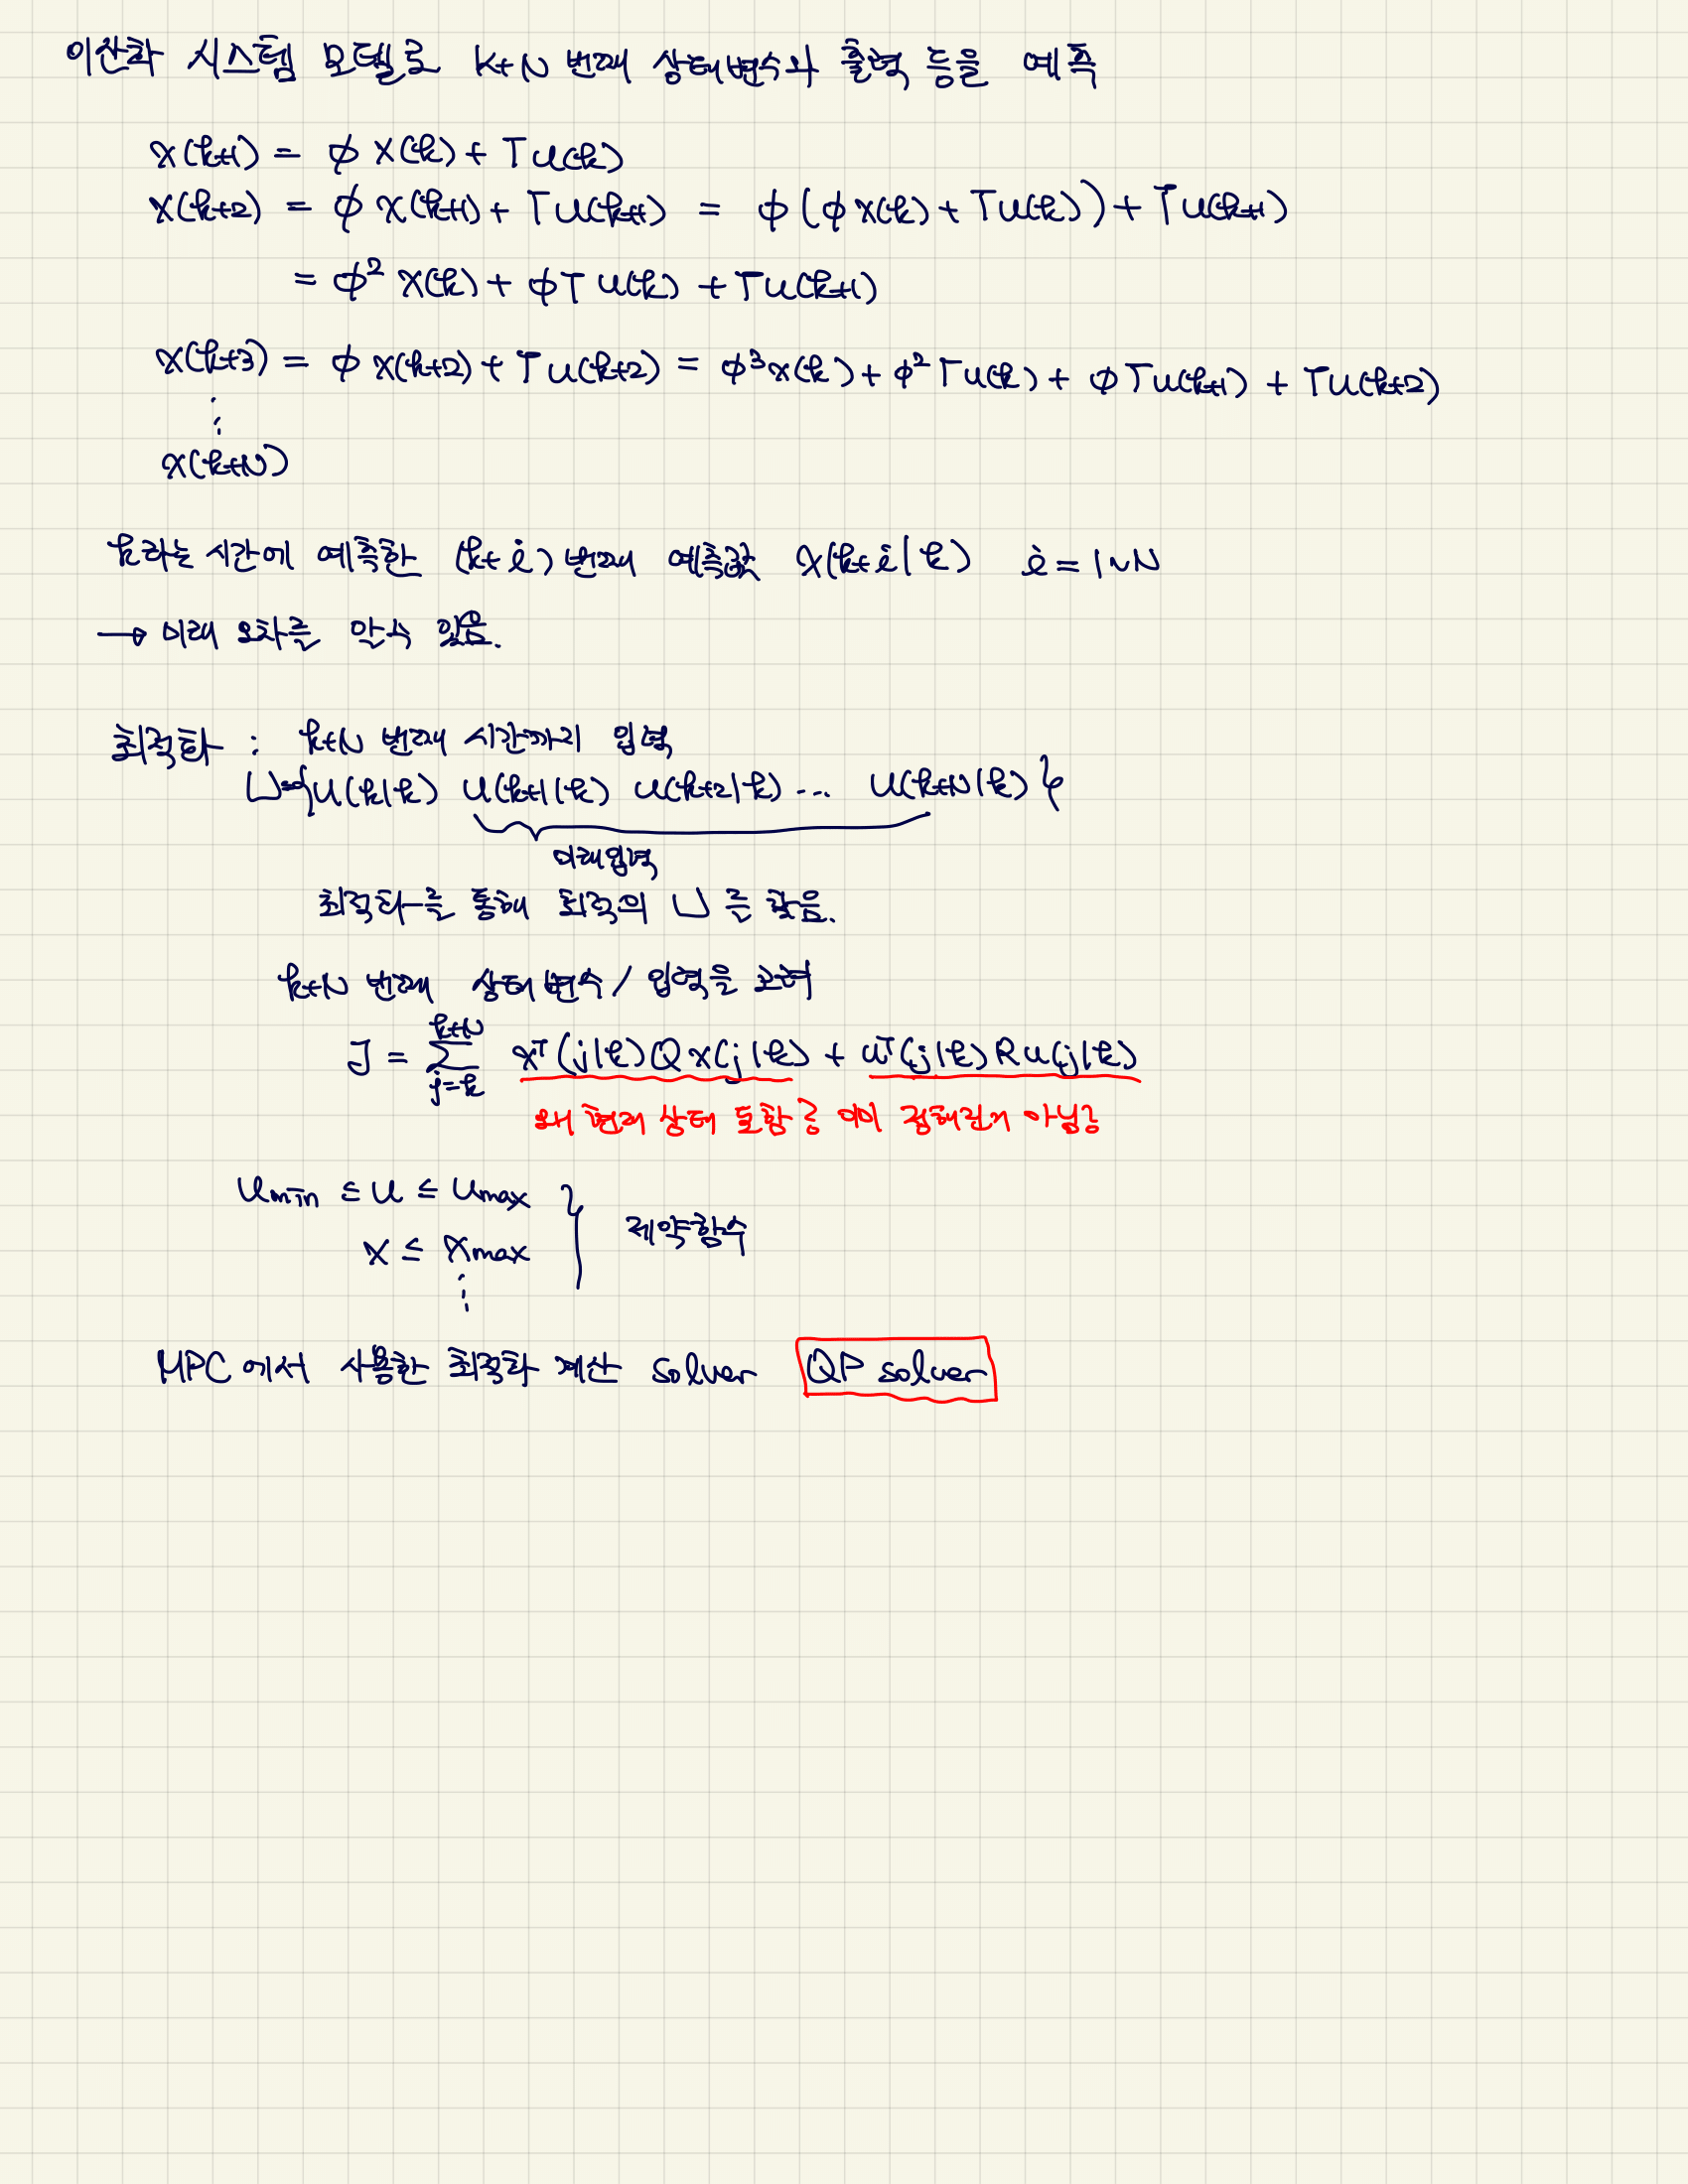 이산화 시스템 모델로 k+N 번째 상태변수와 출력 등을 예측
x(k+1) = ϕ x(k) + Γ u(k)
x(k+2) = ϕ x(k+1) + Γ u(k+1) = ϕ (ϕ x(k) + Γ u(k)) + Γ u(k+1)
= ϕ² x(k) + ϕ Γ u(k) + Γ u(k+1)
x(k+3) = ϕ x(k+2) + Γ u(k+2) = ϕ³ x(k) + ϕ² Γ u(k) + ϕ Γ u(k+1) + Γ u(k+2)
⋮
x(k+N)
k라는 시간에 예측한 (k+i) 번째 예측값 x(k+i|k) i = 1~N
→ 미래 오차를 알 수 있음.
최적화 : k+N 번째 시간까지 입력
U={u(k|k) u(k+1|k) u(k+2|k) ... u(k+N|k)}
미래입력
최적화를 통해 최적의 U를 찾음.
k+N 번째 상태변수/입력을 고려
J = Σ_{j=k}^{k+N} xᵀ(j|k)Qx(j|k) + uᵀ(j|k)Ru(j|k)
왜 현재 상태 포함? 이미 정해진거 아님?
u_min ≤ u ≤ u_max
x ≤ x_max
⋮
제약함수
MPC에서 사용한 최적화 계산 solver QP solver